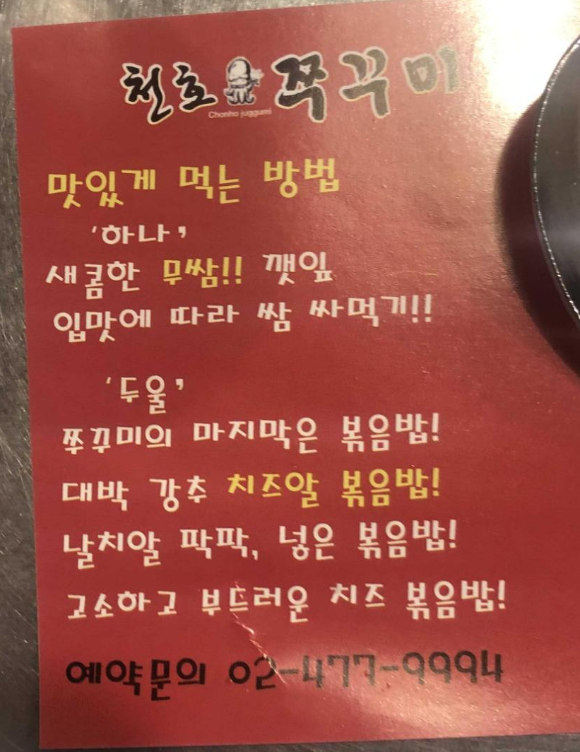 천호 쭈꾸미
Chonho juggumi
맛있게 먹는 방법
'하나'
새콤한 무쌈!! 깻잎
입맛에 따라 쌈 싸먹기!!
'두울'
쭈꾸미의 마지막은 볶음밥!
대박 강추 치즈알 볶음밥!
날치알 팍팍, 넣은 볶음밥!
고소하고 부드러운 치즈 볶음밥!
예약문의 02-477-9994